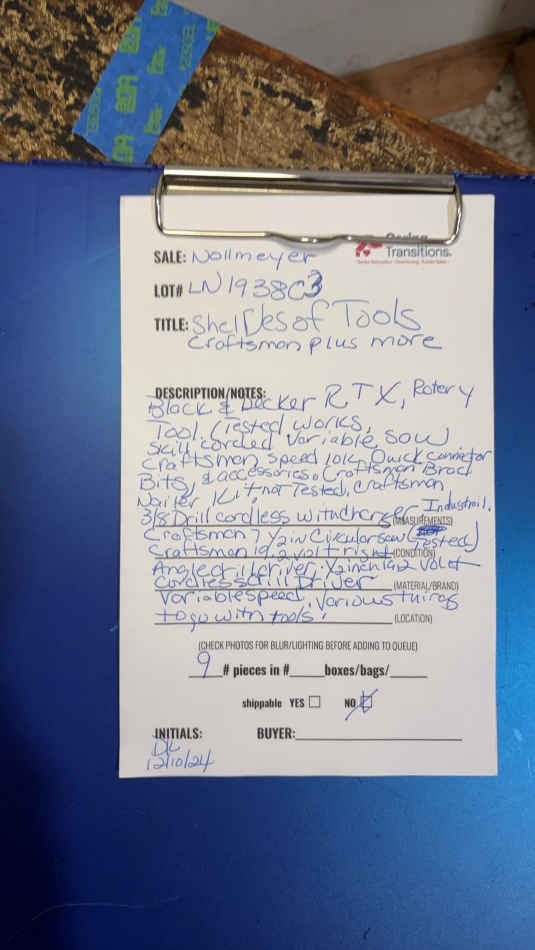 Caring
Transitions.
SALE: Nollmeyer
LOT# LN1938C3
TITLE: Shelves of Tools
Craftsman plus more
DESCRIPTION/NOTES:
Black & Decker RTX, Rotery
Tool, (Tested works,
Skill corded variable saw
Craftsman speed lok Quick connector
Bits, & accessories. Craftsman Brad
Nailer Kit not Tested, Craftsman
3/8 Drill cordless with charger Industrial.
(MEASUREMENTS)
Craftsman 7 1/2 in Cikularsaw (Tested)
Craftsman 19.2 volt right (CONDITION)
Angle drill driver. 1/2 inch 19.2 volt
Cordless drill Driver (MATERIAL/BRAND)
Variable speed, various things
to go with tools. (LOCATION)
(CHECK PHOTOS FOR BLUR/LIGHTING BEFORE ADDING TO QUEUE)
9 # pieces in # boxes/bags/
shippable YES NO
INITIALS: BUYER:
DL
12/10/24